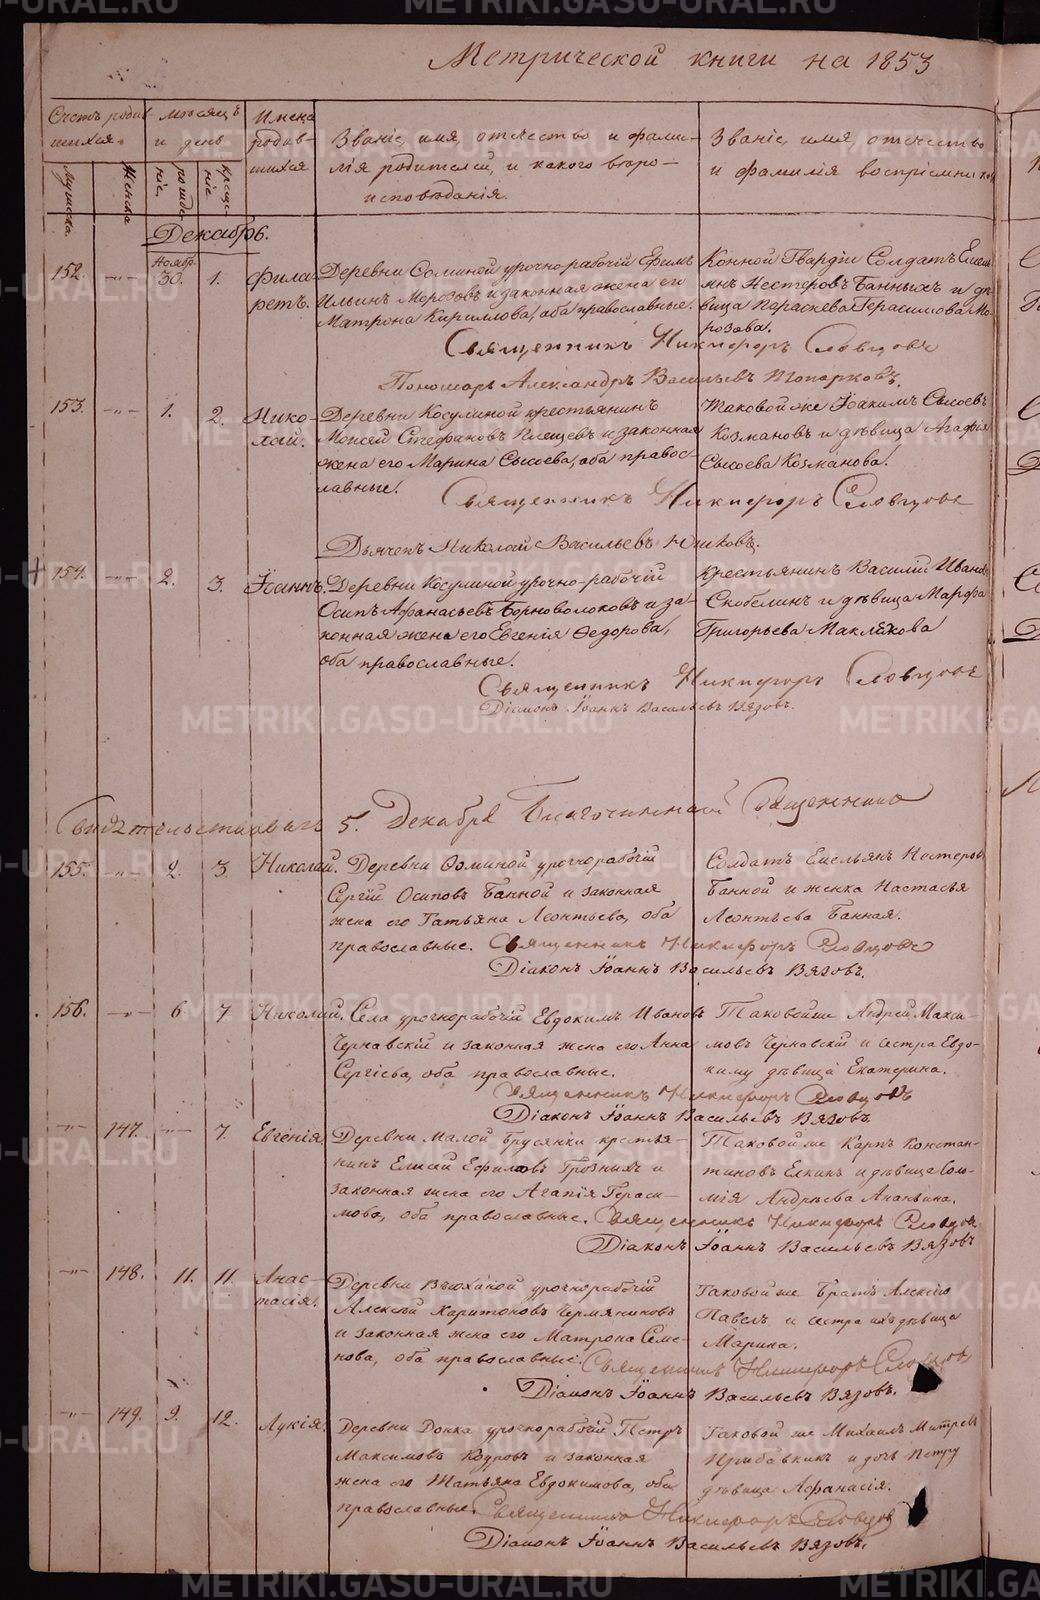 Метрической книги на 1853
Счетъ родив-
шихся.
Мужеска.
Женска
мѣсяцъ
и день
рожде-
ніе.
креще-
ніе
Имена
родив-
шихся
Званіе, имя, отчество и фами-
лія родителей, и какого вѣро-
исповѣданія.
Званіе, имя, отчество
и фамилія воспріемниковъ
Декабрь.
152. -„- Ноябр. 30. 1. Фила-
ретъ.
Деревни Фоминой урочнорабочій Ефимъ
Ильинъ Морозовъ и законная жена его
Матрона Кириллова, оба православные.
Конной Гвардіи Солдатъ Емель-
янъ Нестеровъ Банныхъ и дѣ-
вица Параскева Герасимова Мо-
розова.
Священникъ Никифоръ Словцовъ
Пономарь Александръ Васильевъ Топорковъ.
153. -„- 1. 2. Нико-
лай.
Деревни Косулиной крестьянинъ
Моисей Стефановъ Клещевъ и законная
жена его Марина Сысоева, оба правос-
лавные.
Таковой же Іоакимъ Сысоевъ
Козмановъ и дѣвица Агафія
Сысоева Козманова.
Священникъ Никифоръ Словцовъ
Дьячекъ Николай Васильевъ Юшковъ.
154. -„- 2. 3. Іоаннъ.
Деревни Косулиной урочно-рабочій
Осипъ Афанасьевъ Борноволоковъ и за-
конная жена его Евгенія Федорова,
оба православные.
Крестьянинъ Василій Иванов
Скобелинъ и дѣвица Марфа
Григорьева Маклакова
Священникъ Никифоръ Словцовъ
Діаконъ Іоаннъ Васильевъ Вязовъ.
Свидѣтельствовалъ 5. Декабря Благочинной Священникъ
155. -„- 2. 3. Николай.
Деревни Фоминой урочнорабочій
Сергій Осиповъ Банной и законная
жена его Татьяна Леонтьева, оба
православные.
Солдатъ Емельянъ Нестеровъ
Банной и женка Настасья
Леонтьева Банная.
Священникъ Никифоръ Словцовъ
Діаконъ Іоаннъ Васильевъ Вязовъ.
156. -„- 6 7 Николай.
Села урочнорабочій Евдокимъ Ивановъ
Чернавскій и законная жена его Анна
Сергіева, оба православные.
Таковой же Андрей Макси-
мовъ Чернавскій и сестра Евдо-
киму дѣвица Екатерина.
Священникъ Никифоръ Словцовъ
Діаконъ Іоаннъ Васильевъ Вязовъ
-„- 147. -„- 7. Евгенія.
Деревни Малой Брусянки крестья-
нинъ Елисей Ефимовъ Грозныхъ и
законная жена его Агапія Гераси-
мова, оба православные.
Таковой же Карпъ Констан-
тиновъ Елкинъ и дѣвица Соло-
мія Андреева Ананьина.
Священникъ Никифоръ Словцовъ
Діаконъ Іоаннъ Васильевъ Вязовъ
-„- 148. 11. 11. Анас-
тасія.
Деревни Вьюханой урочнорабочій
Алексѣй Харитоновъ Чермяниновъ
и законная жена его Матрона Семе-
нова, оба православные.
Таковой же Братъ Алексію
Павелъ и сестра ихъ дѣвица
Марина.
Священникъ Никифоръ Словцовъ
Діаконъ Іоаннъ Васильевъ Вязовъ.
-„- 149. 9. 12. Лукія.
Деревни Донка урочнорабочій Петръ
Максимовъ Кодровъ и законная
жена его Татьяна Евдокимова, оба
православные.
Таковой же Михаилъ Митрев
Прибавкинъ и дочь Петру
дѣвица Афанасія.
Священникъ Никифоръ Словцовъ
Діаконъ Іоаннъ Васильевъ Вязовъ.
METRIKI.GASO-URAL.RU